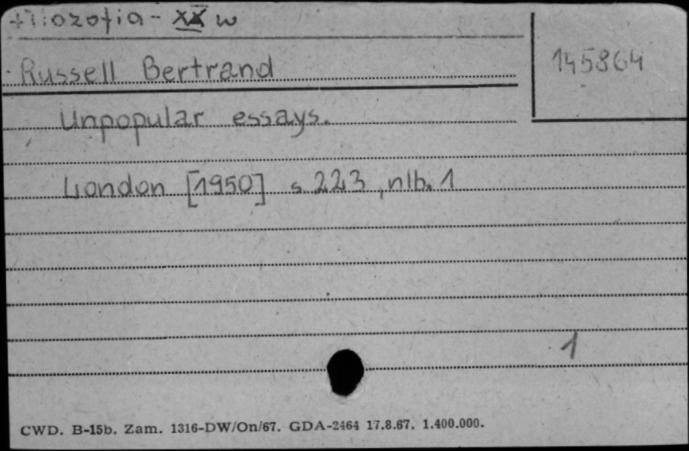 filozofia - XX w
145864
Russell Bertrand
Unpopular essays.
London [1950] s 223, nlb. 1
1
CWD. B-15b. Zam. 1316-DW/On/67. GDA-2464 17.8.67. 1.400.000.